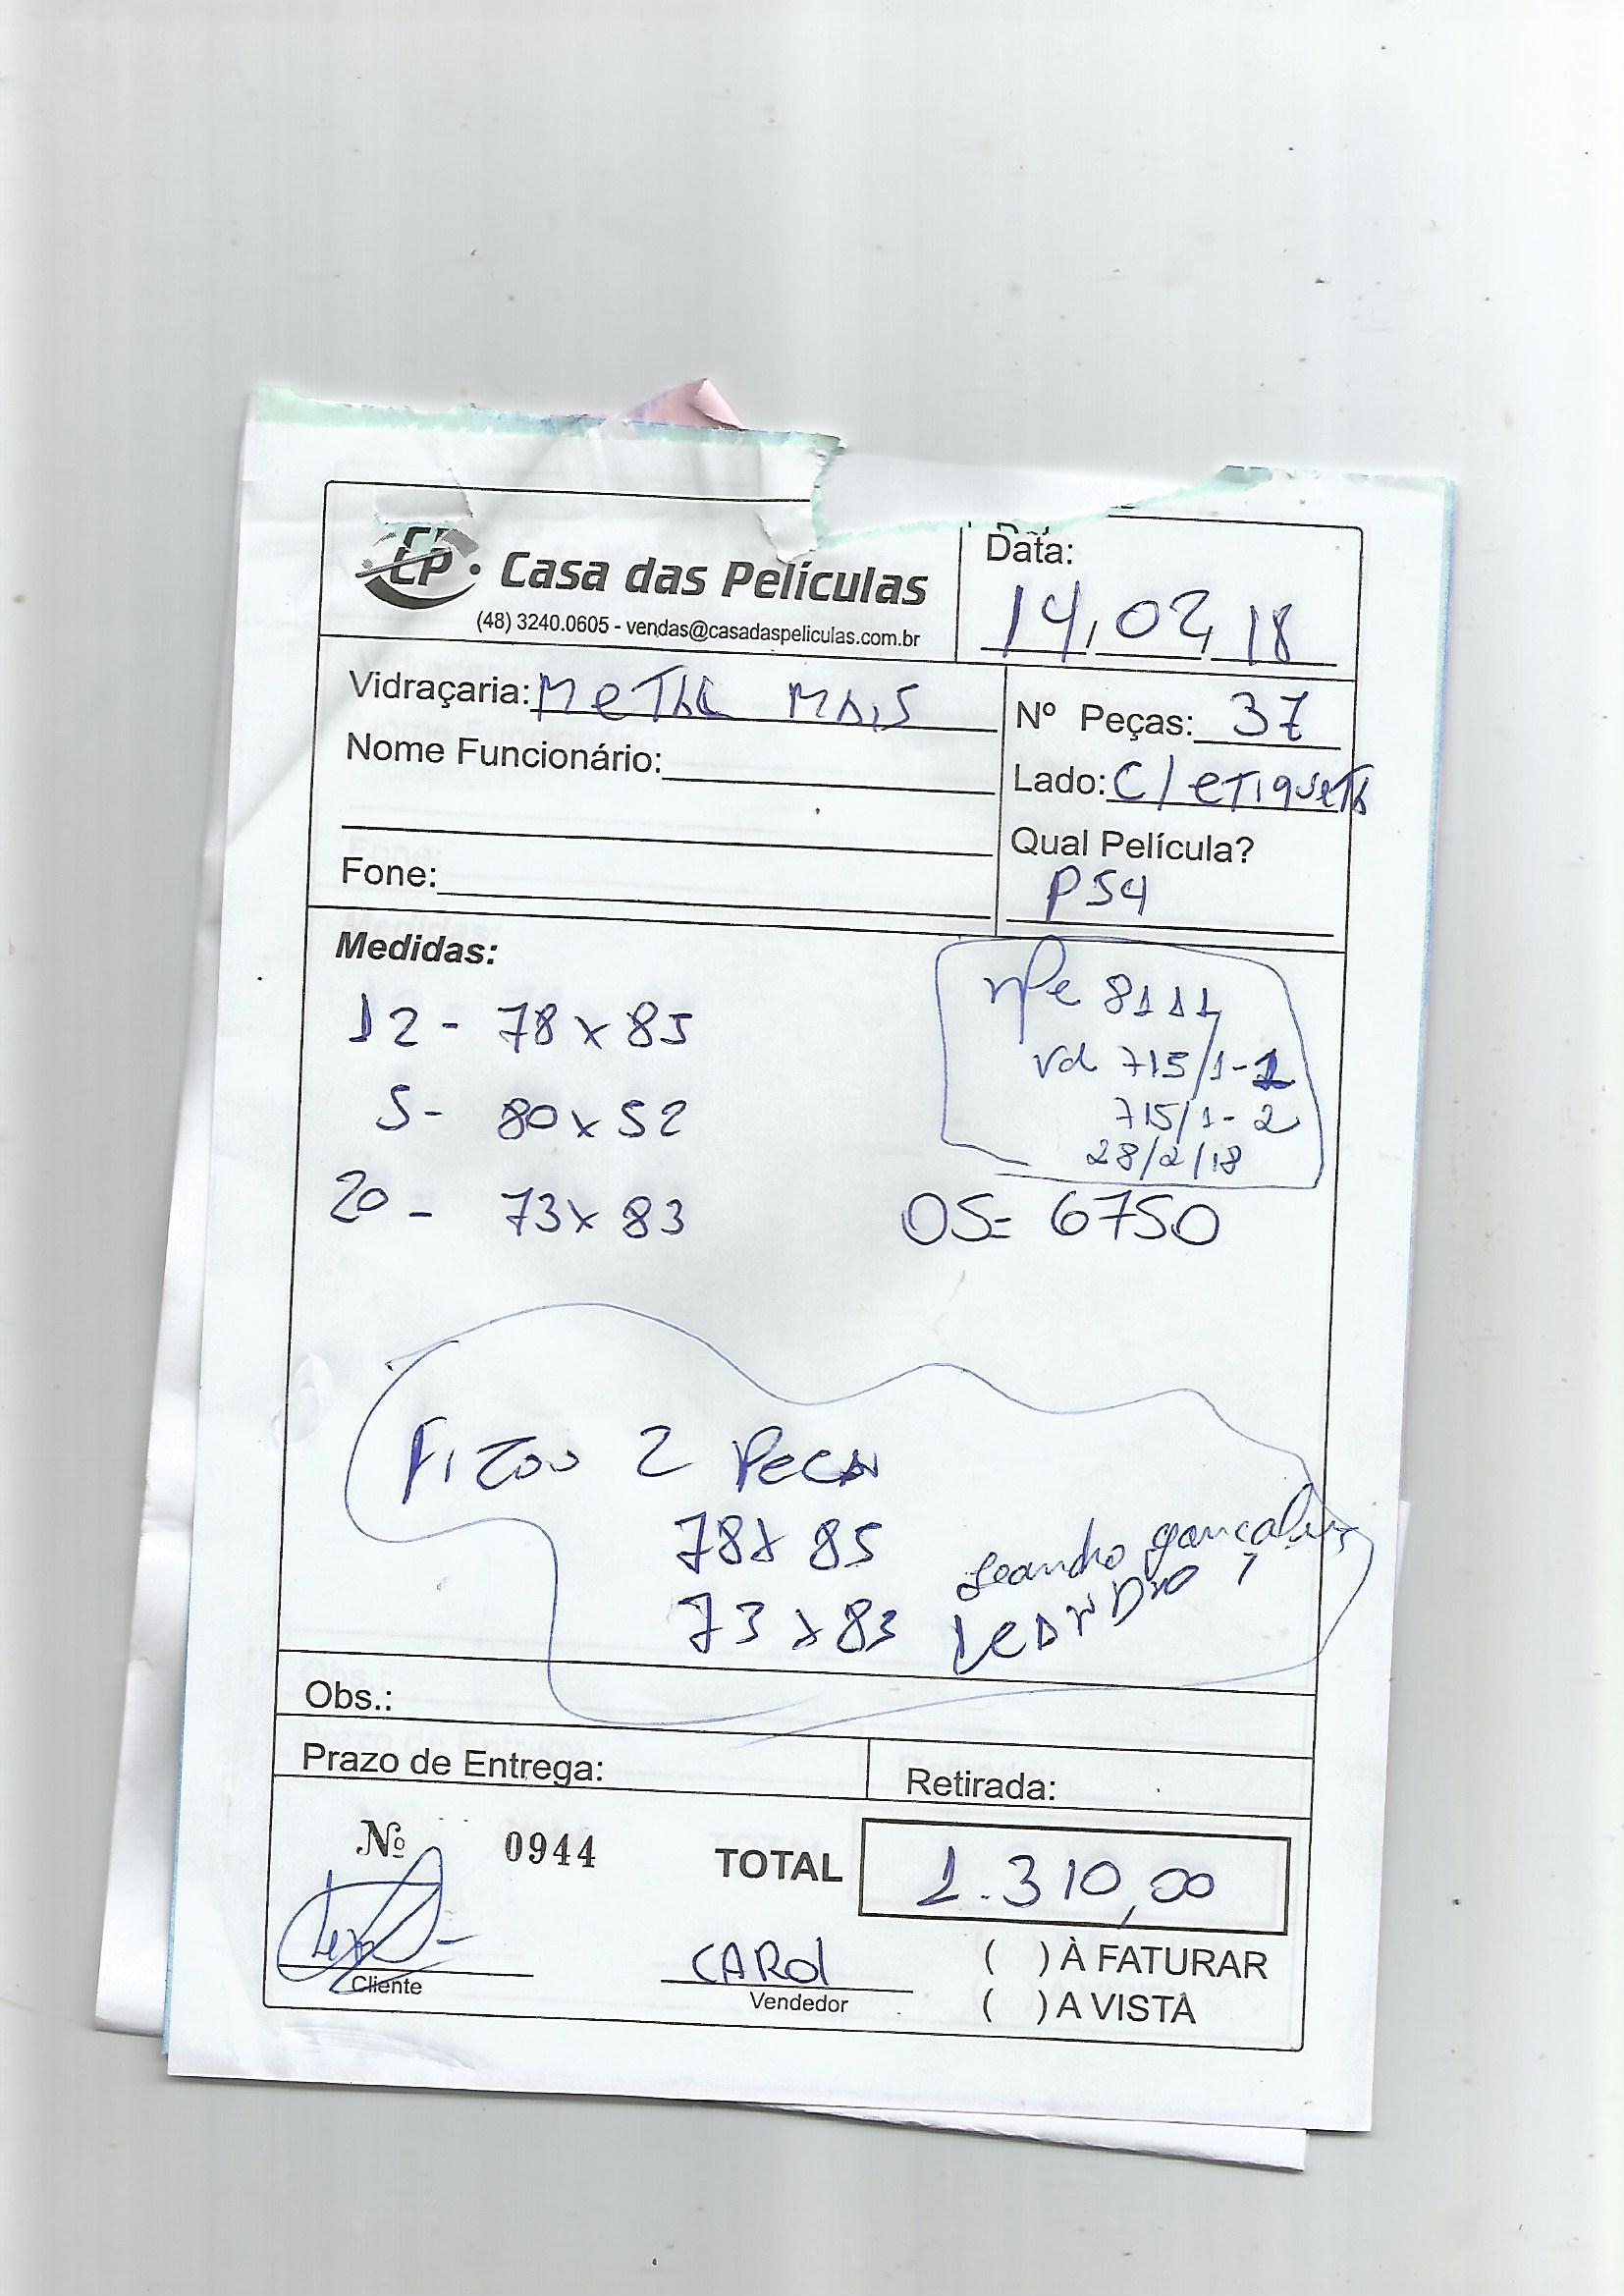 CP. Casa das Películas
(48) 3240.0605 - vendas@casadaspeliculas.com.br
Data:
14, 02, 18
Vidraçaria: Metal Mais
Nº Peças: 37
Nome Funcionário:
Lado: C/ etiqueta
Qual Película?
PS4
Fone:
Medidas:
12 - 78 x 85
5 - 80 x 52
20 - 73 x 83
nfe 8111
vd 715/1-1
715/1-2
28/2/18
OS= 6750
Ficou 2 Peca
78 x 85
73 x 83
Leandro Gonçalves
Leandro
Obs.:
Prazo de Entrega:
Retirada:
Nº 0944
TOTAL 1.310,00
Cliente
CAROl
Vendedor
( ) À FATURAR
( ) A VISTA